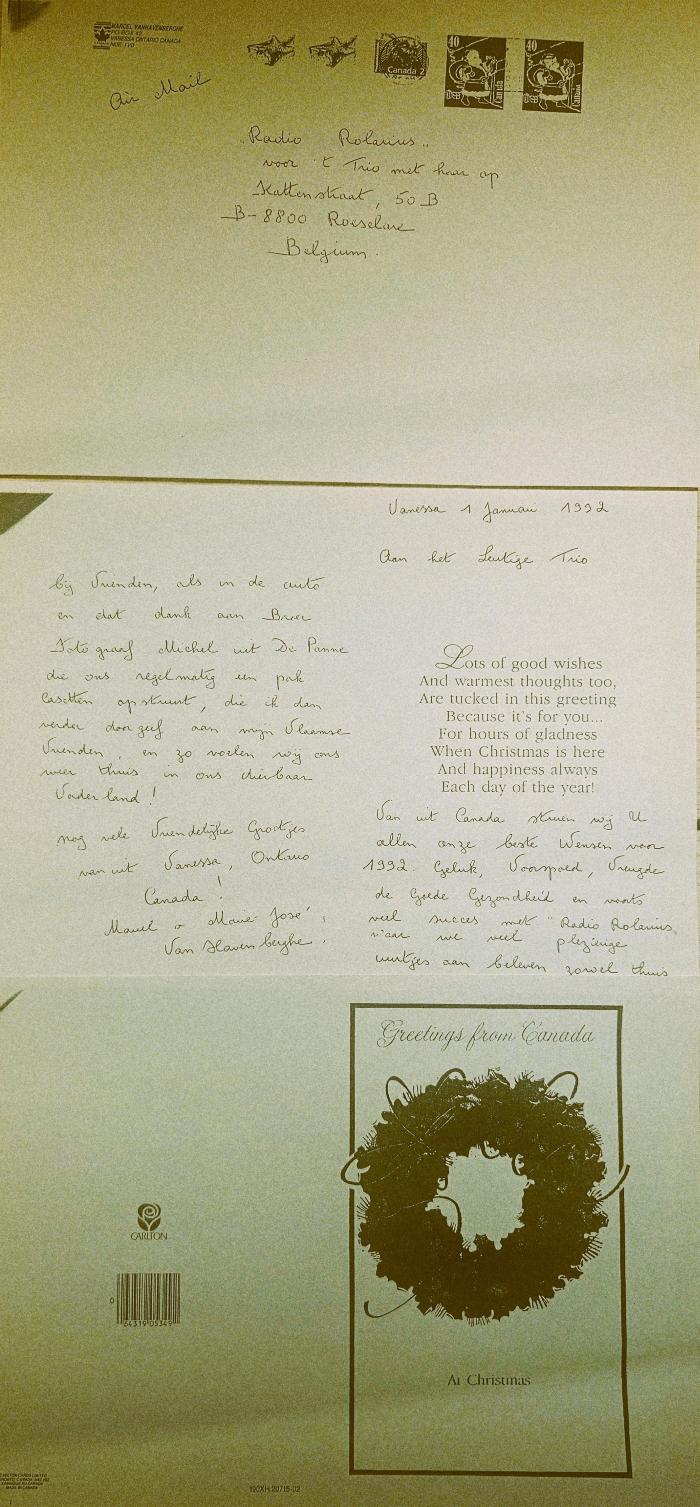 MARCEL VANHAVERBERGHE
PO BOX 42
VANESSA ONTARIO CANADA
NOE 1V0
Air Mail
Canada 2
40
Canada
40
Canada
"Radio Rolarius"
voor 't Trio met haar op
Kattenstraat, 50 B
B-8800 Roeselare
Belgium.
Vanessa 1 Januari 1992
Aan het Leutige Trio
Lots of good wishes
And warmest thoughts too,
Are tucked in this greeting
Because it's for you...
For hours of gladness
When Christmas is here
And happiness always
Each day of the year!
Van uit Canada sturen wij U
allen onze beste Wensen voor
1992. Geluk, Voorspoed, Vreugde
de Goede Gezondheid en voorts
veel succes met "Radio Rolarius,
waar we veel plezierige
uurtjes aan beleven zowel thuis
bij Vrienden, als in de auto
en dat dank aan Broer
Fotograaf Michel uit De Panne
die ons regelmatig een pak
Casetten opstuurt, die ik dan
verder doorgeef aan mijn Vlaamse
Vrienden, en zo voelen wij ons
weer thuis in ons dierbaar
Vaderland!
nog vele Vriendelijke Groetjes
van uit Vanessa, Ontario
Canada!
Marcel & Marie José,
Van Haverberghe.
Greetings from Canada
At Christmas
CARLTON
0
64319 05349
CARLTON CARDS LIMITED
MADE IN CANADA
190XH 20715-02